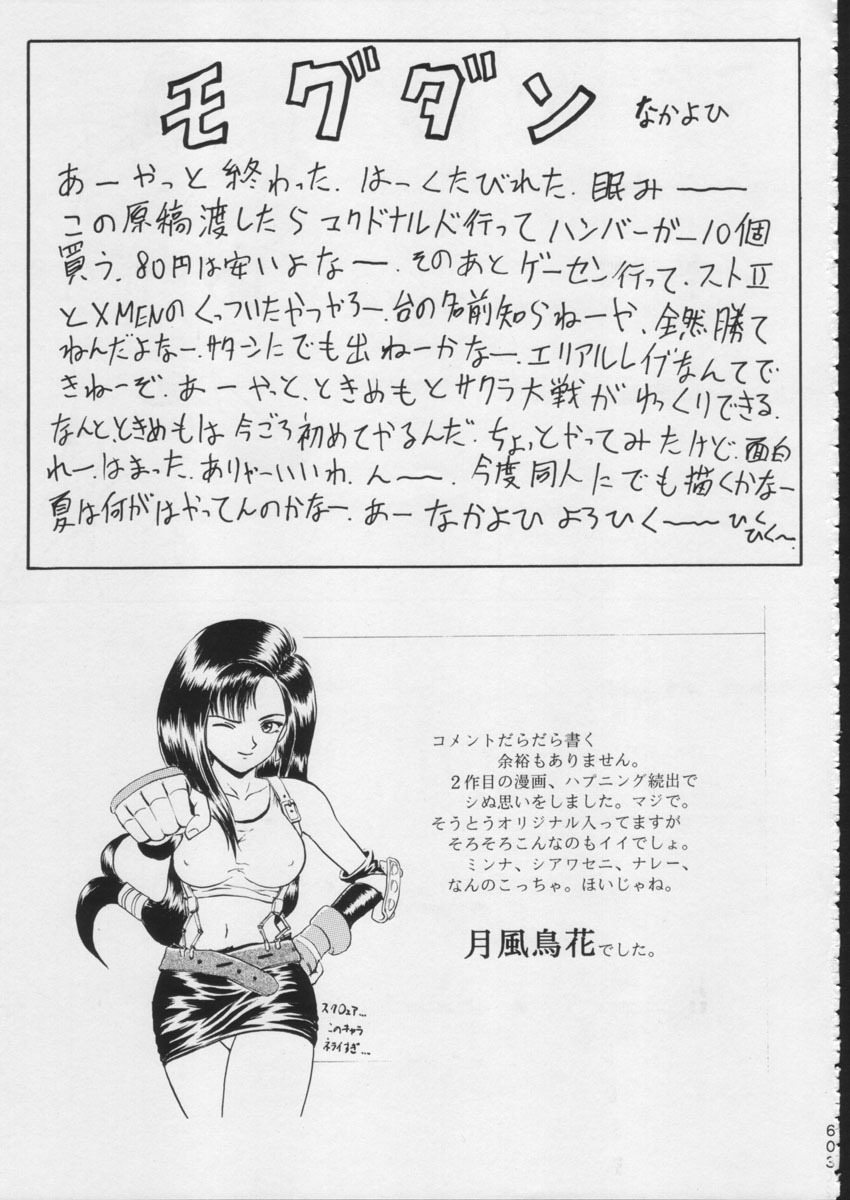 モグダン なかよひ
あーやっと終わった.はーくたびれた.眠みー
この原稿渡したらマクドナルド行ってハンバーガー10個
買う.80円は安いよなー.そのあとゲーセン行って.ストⅡ
とXMENのくっついたやつやろー.台の名前知らねーや、全然勝て
ねんだよなー.サターンにでも出ねーかなー.エリアルレイヴなんてで
きねーぞ.あーやっと、ときめもとサクラ大戦がゆっくりできる.
なんと、ときめもは今ごろ初めてやるんだ.ちょっとやってみたけど.面白
れー.はまった.ありゃーいいわ.んー.今度同人にでも描くかなー
夏は何がはやってんのかなー.あーなかよひよろひくーひく
ひく～.
コメントだらだら書く
余裕もありません。
２作目の漫画、ハプニング続出で
シぬ思いをしました。マジで。
そうとうオリジナル入ってますが
そろそろこんなのもイイでしょ。
ミンナ、シアワセニ、ナレー、
なんのこっちゃ。ほいじゃね。
月風鳥花でした。
スクウェア…
このキャラ
ネライすぎ…